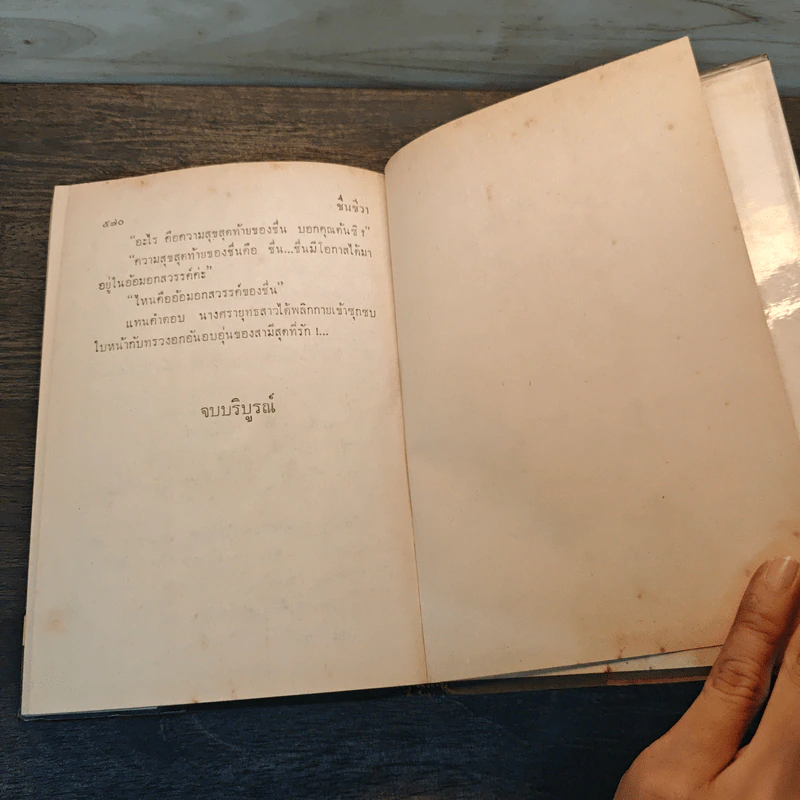 ๕๗๐
ชื่นชีวา
“อะไร คือความสุขสุดท้ายของชื่น บอกคุณต้นซิ !”
“ความสุขสุดท้ายของชื่นคือ ชื่น...ชื่นมีโอกาสได้มา
อยู่ในอ้อมอกสวรรค์ค่ะ”
“ไหนคืออ้อมอกสวรรค์ของชื่น”
แทนคำตอบ นางศรายุทธสาวได้พลิกกายเข้าซุกซบ
ใบหน้ากับทรวงอกอันอบอุ่นของสามีสุดที่รัก !...
จบบริบูรณ์